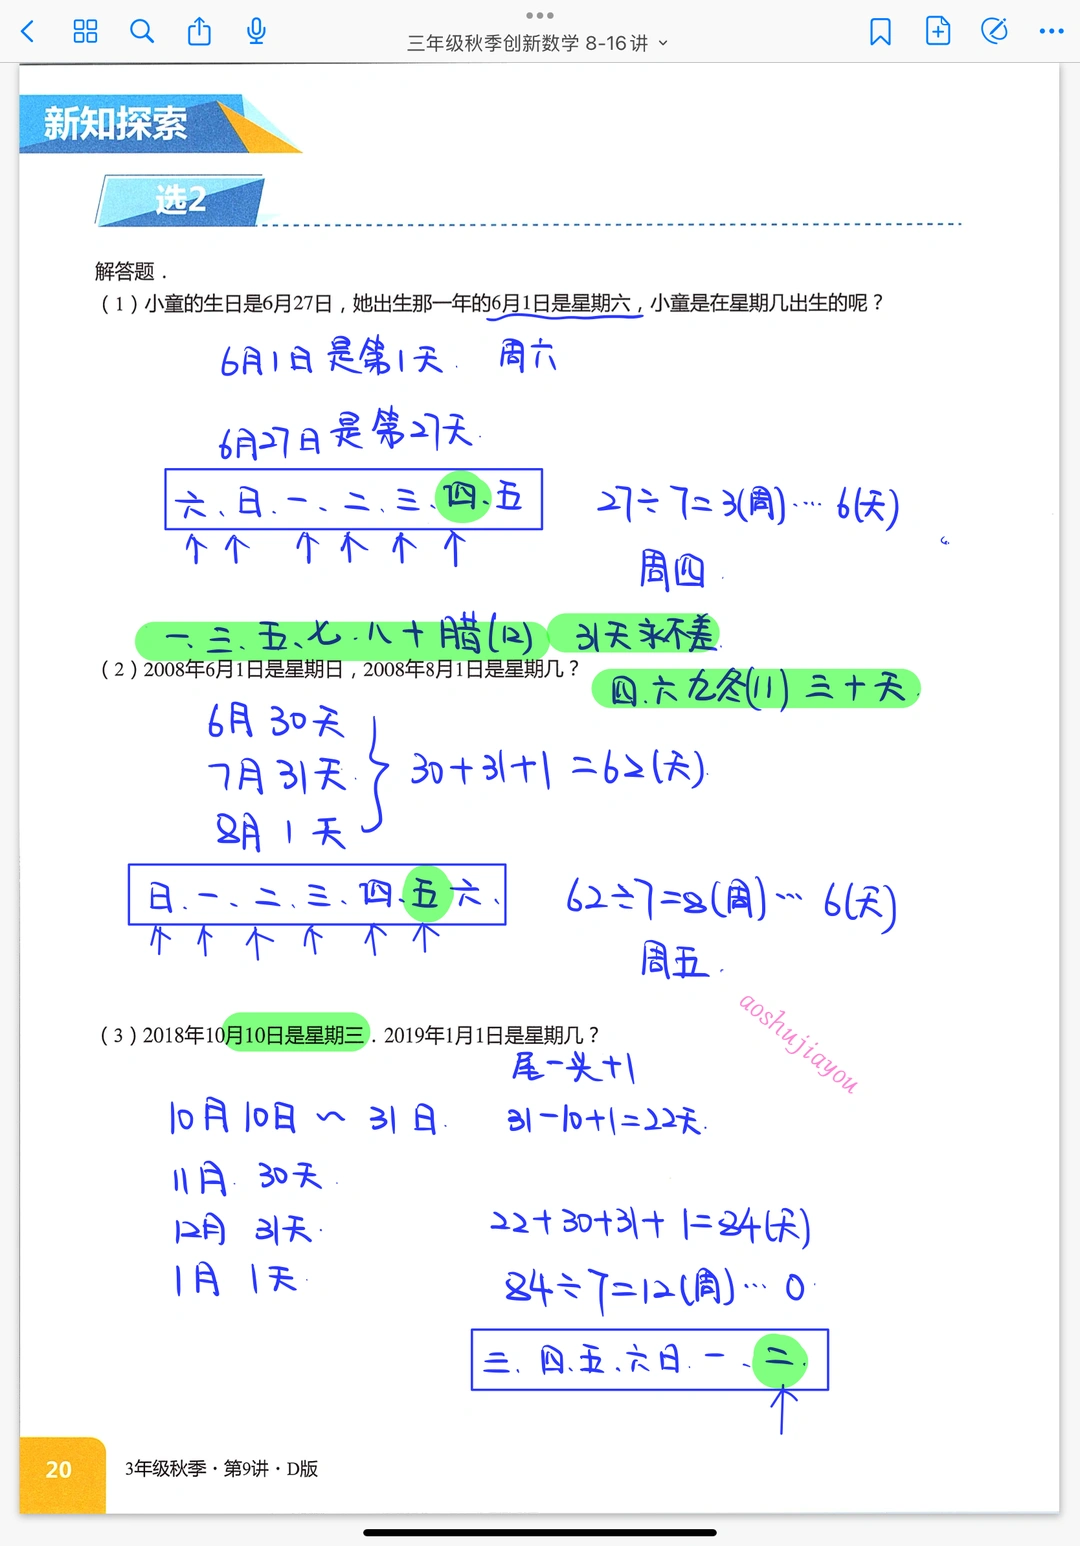 三年级秋季创新数学 8-16讲
新知探索
选2
解答题．
（1）小童的生日是6月27日，她出生那一年的6月1日是星期六，小童是在星期几出生的呢？
6月1日是第1天. 周六
6月27日是第27天.
六、日、一、二、三、四、五
27÷7=3(周)…6(天)
周四.
一、三、五、七、八十腊(12) 31天永不差.
（2）2008年6月1日是星期日，2008年8月1日是星期几？
四、六九冬(11) 三十天.
6月30天
7月31天.
8月1天
30+31+1=62(天).
日、一、二、三、四、五六、
62÷7=8(周)…6(天)
周五.
aoshujiayou
（3）2018年10月10日是星期三．2019年1月1日是星期几？
尾-头+1
10月10日~31日.
31-10+1=22天.
11月. 30天.
12月 31天.
1月 1天.
22+30+31+1=84(天)
84÷7=12(周)…0
三、四、五、六日、一、二.
20
3年级秋季·第9讲·D版